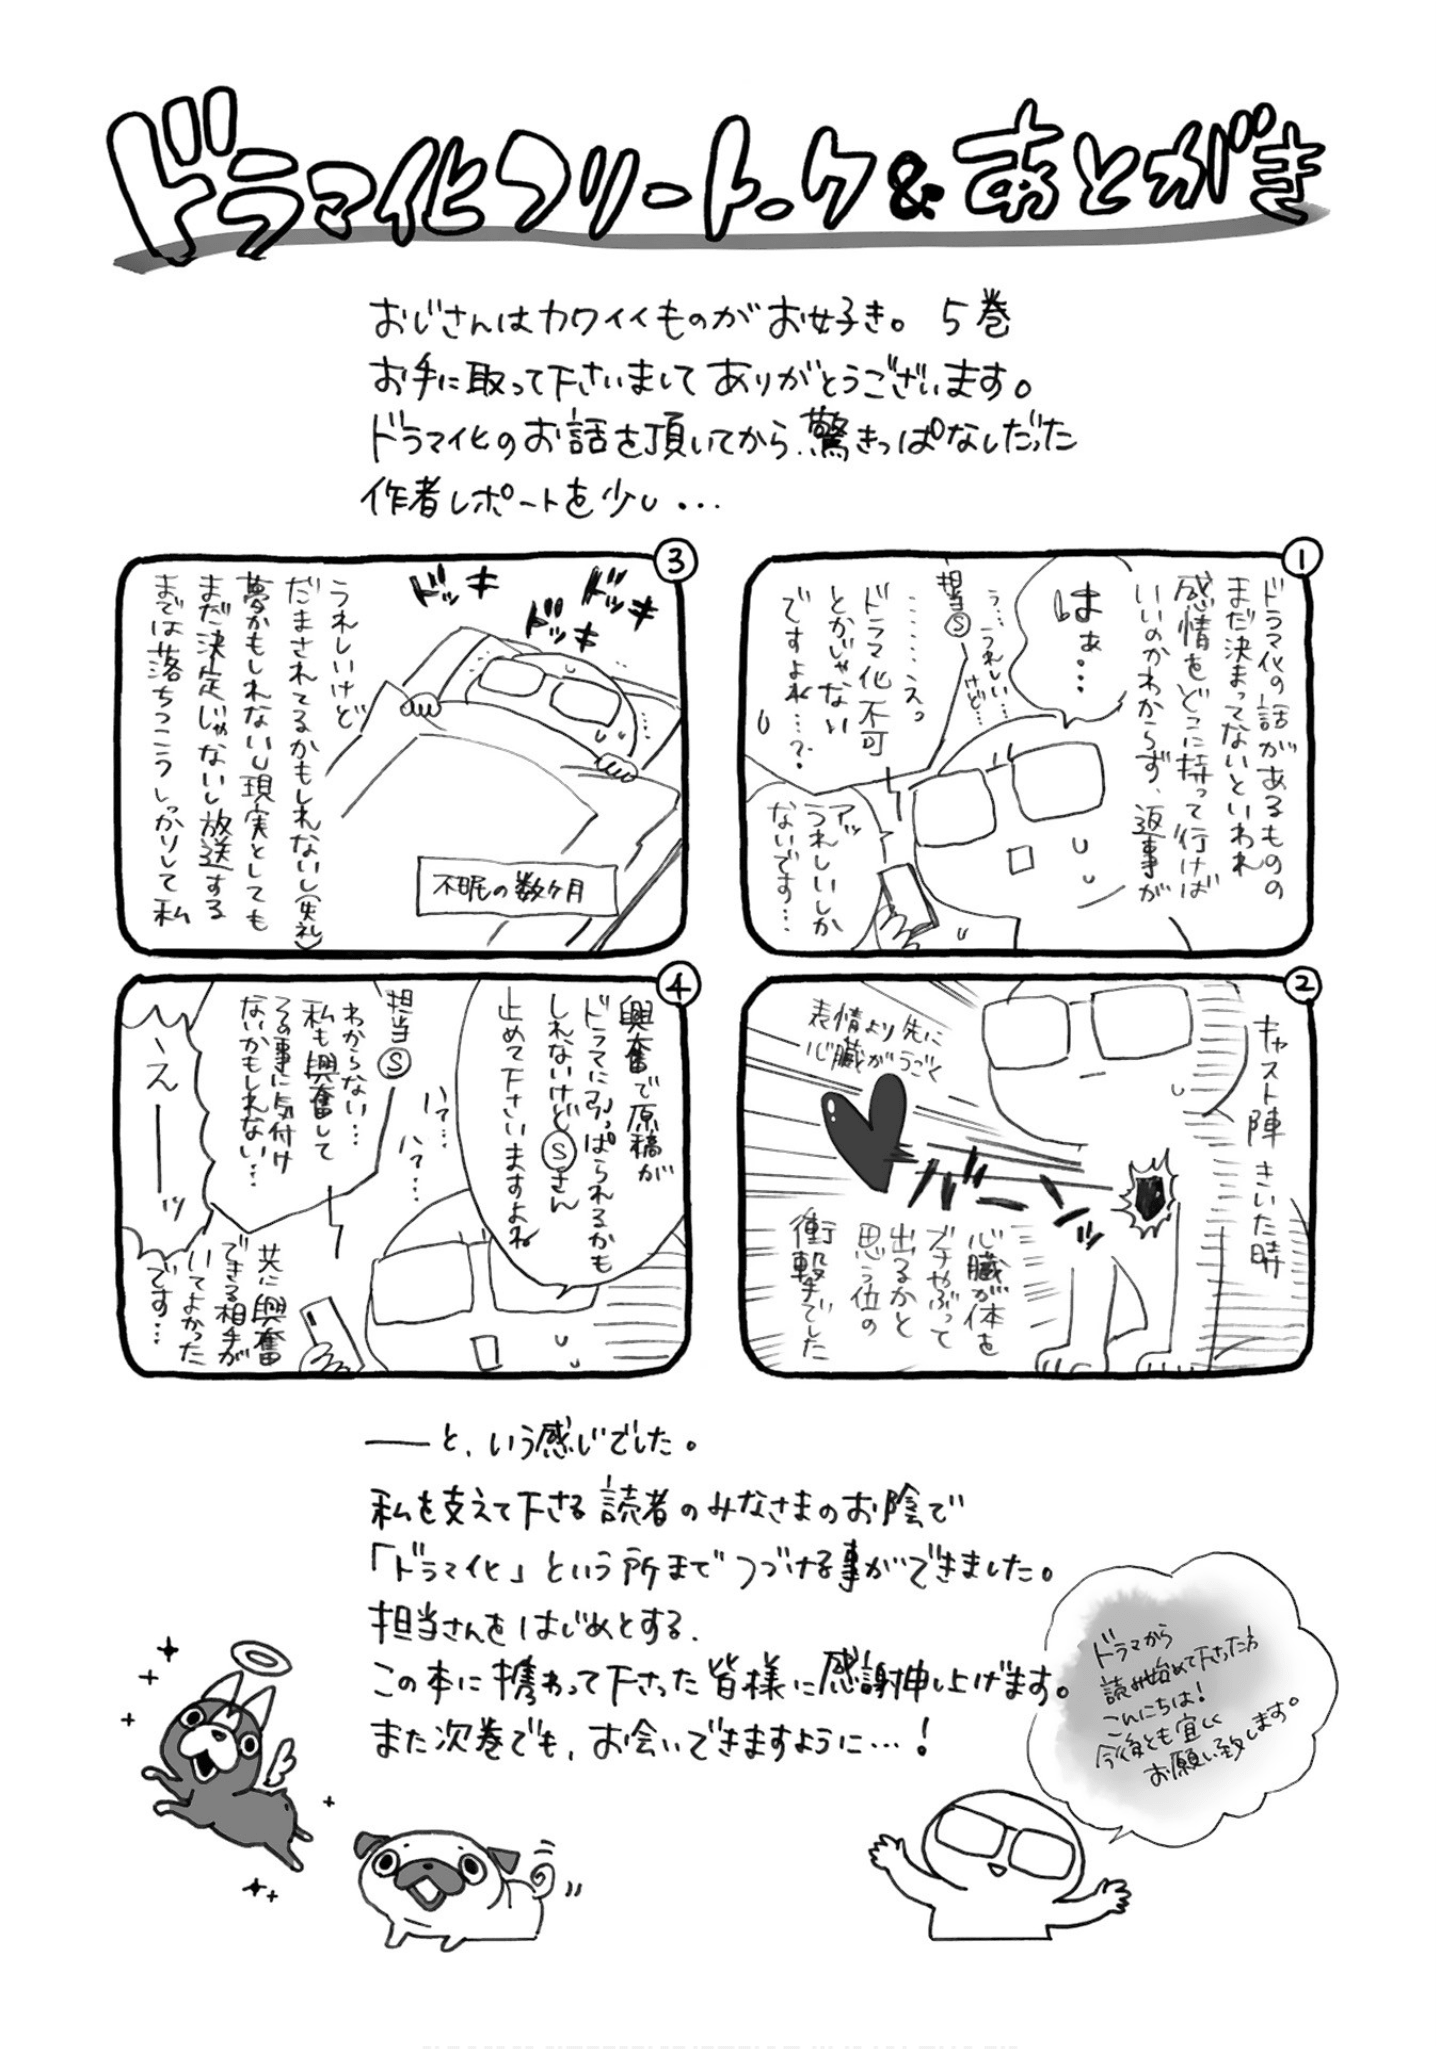 ドラマ化フリートーク&あとがき
おじさんはカワイイものがお好き。5巻
お手に取って下さいまして ありがとうございます。
ドラマ化のお話を頂いてから、驚きっぱなしだった
作者レポートを少し・・・
①
ドラマ化の話があるものの
まだ決まってないといわれ
感情をどこに持って行けば
いいのかわからず、返事が
はぁ…
う…うれしい…
けど…
担当Ⓢ
……えっ
ドラマ化不可
とかじゃない
ですよね…?
アッ
うれしいしか
ないです…
②
キャスト陣きいた時
表情より先に
心臓がうごく
バーンッ
心臓が体を
ブチやぶって
出るかと
思う位の
衝撃でした
③
ドッキ
ドッキ
ドッキ
うれしいけど
だまされてるかもしれないし(失礼)
夢かもしれないし現実としても
まだ決定じゃないし放送する
までは落ちつこうしっかりして私
不眠の数ヶ月
④
興奮で原稿が
ドラマに引っぱられるかも
しれないけどⓈさん
止めて下さいますよね
ハァ…
ハァ…
担当Ⓢ
わからない…
私も興奮して
その事に気付け
ないかもしれない…
へえーーッ
共に興奮
できる相手が
いてよかった
です…
――と、いう感じでした。
私を支えて下さる読者のみなさまのお陰で
「ドラマ化」という所までつづける事ができました。
担当さんをはじめとする、
この本に携わって下さった皆様に感謝申し上げます。
また次巻でも、お会いできますように…!
ドラマから
読み始めて下さった方
こんにちは!
今後とも宜しく
お願い致します。